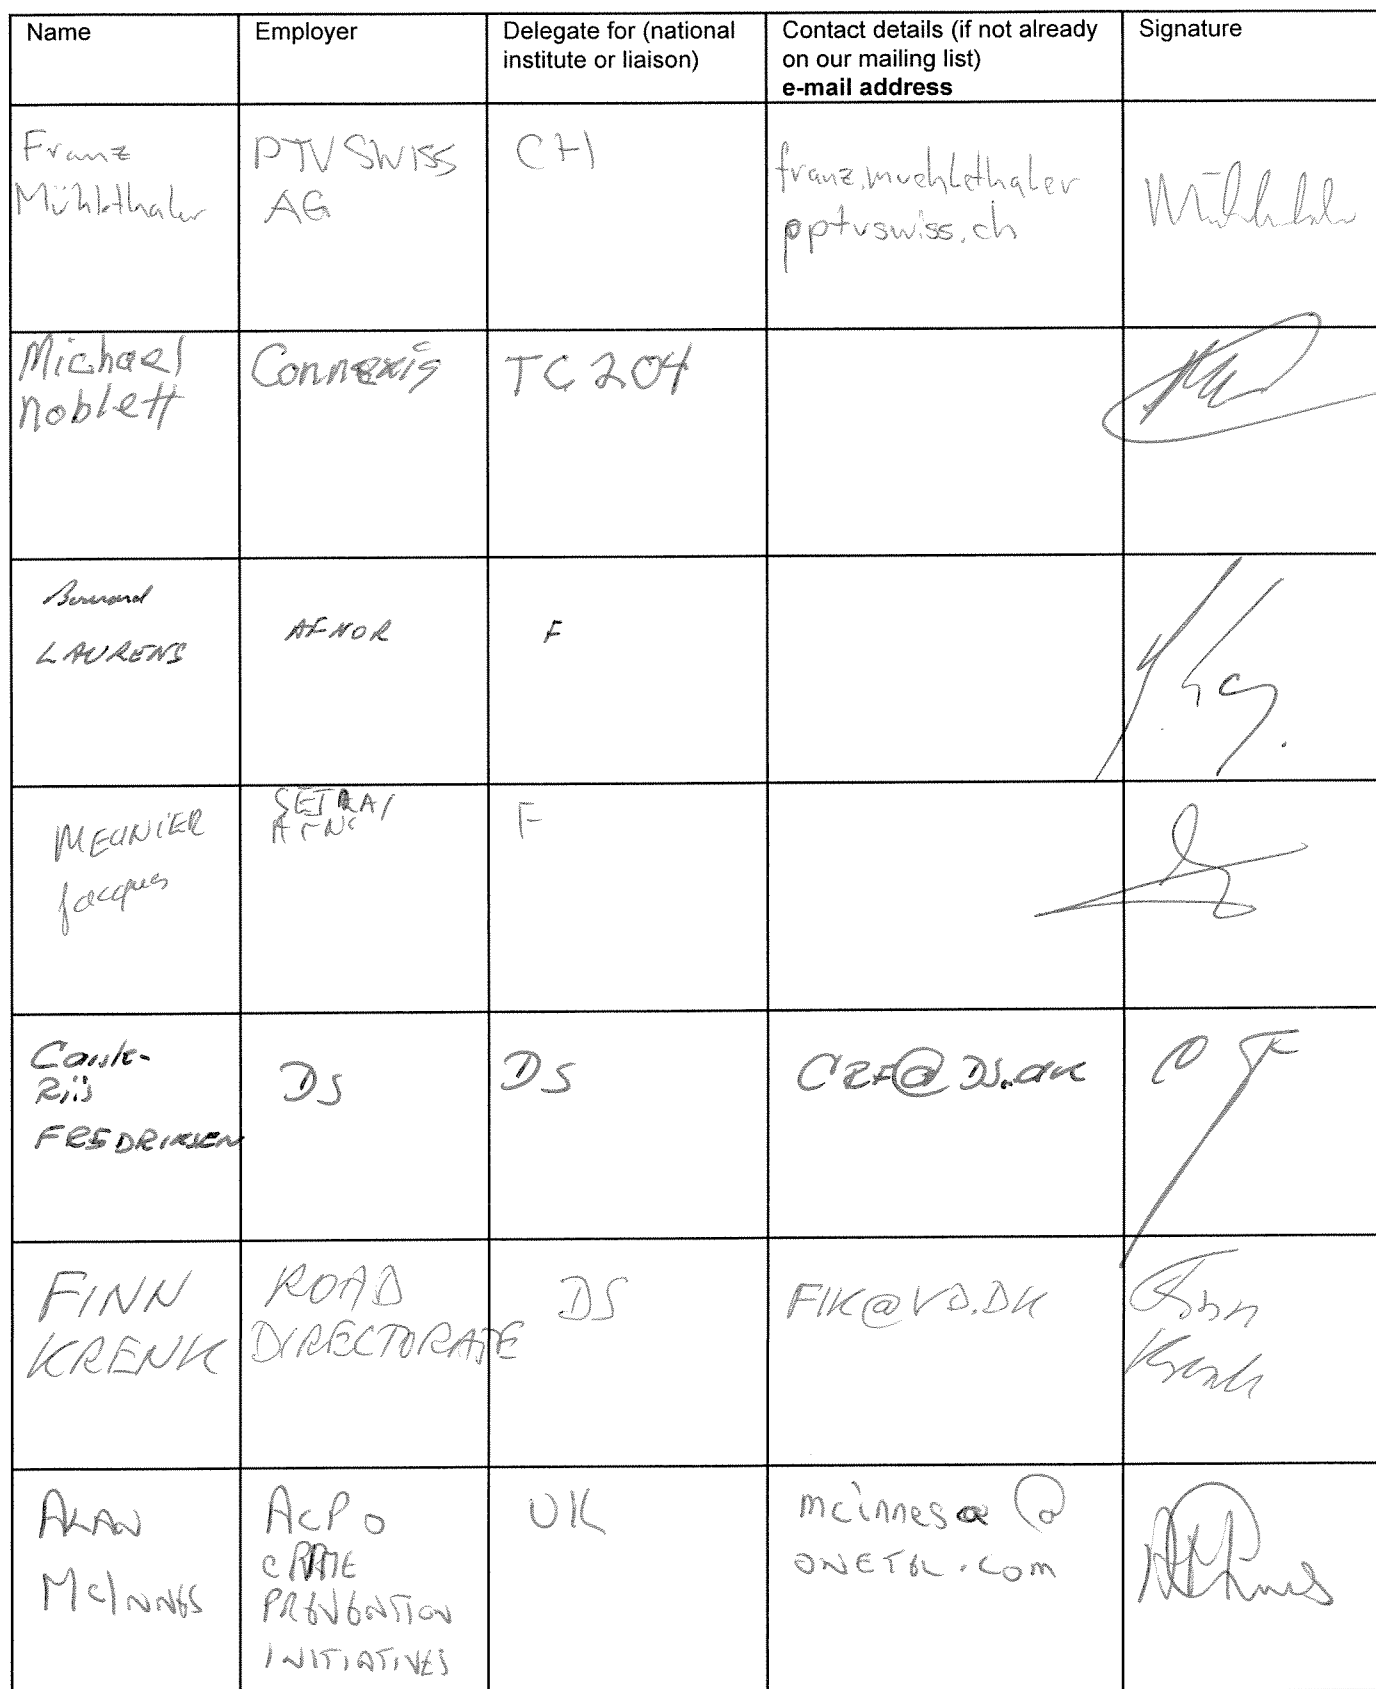 Name
Employer
Delegate for (national
institute or liaison)
Contact details (if not already
on our mailing list)
e-mail address
Signature
Franz
Mühlethaler
PTV SWISS
AG
CH
franz.muehlethaler
@ptvswiss.ch
Michael
Noblett
Connexis
TC 204
Bernard
LAURENS
AFNOR
F
MEUNIER
Jacques
SETRA/
F
Riis
FREDRIKSEN
DS
DS
CRF@DS.DK
FINN
KRENK
ROAD
DIRECTORATE
DS
FIK@VD.DK
Finn
Krenk
ALAN
McINNES
ACPO
CRIME
PREVENTION
INITIATIVES
UK
mcinnesa @
ONETEL.COM